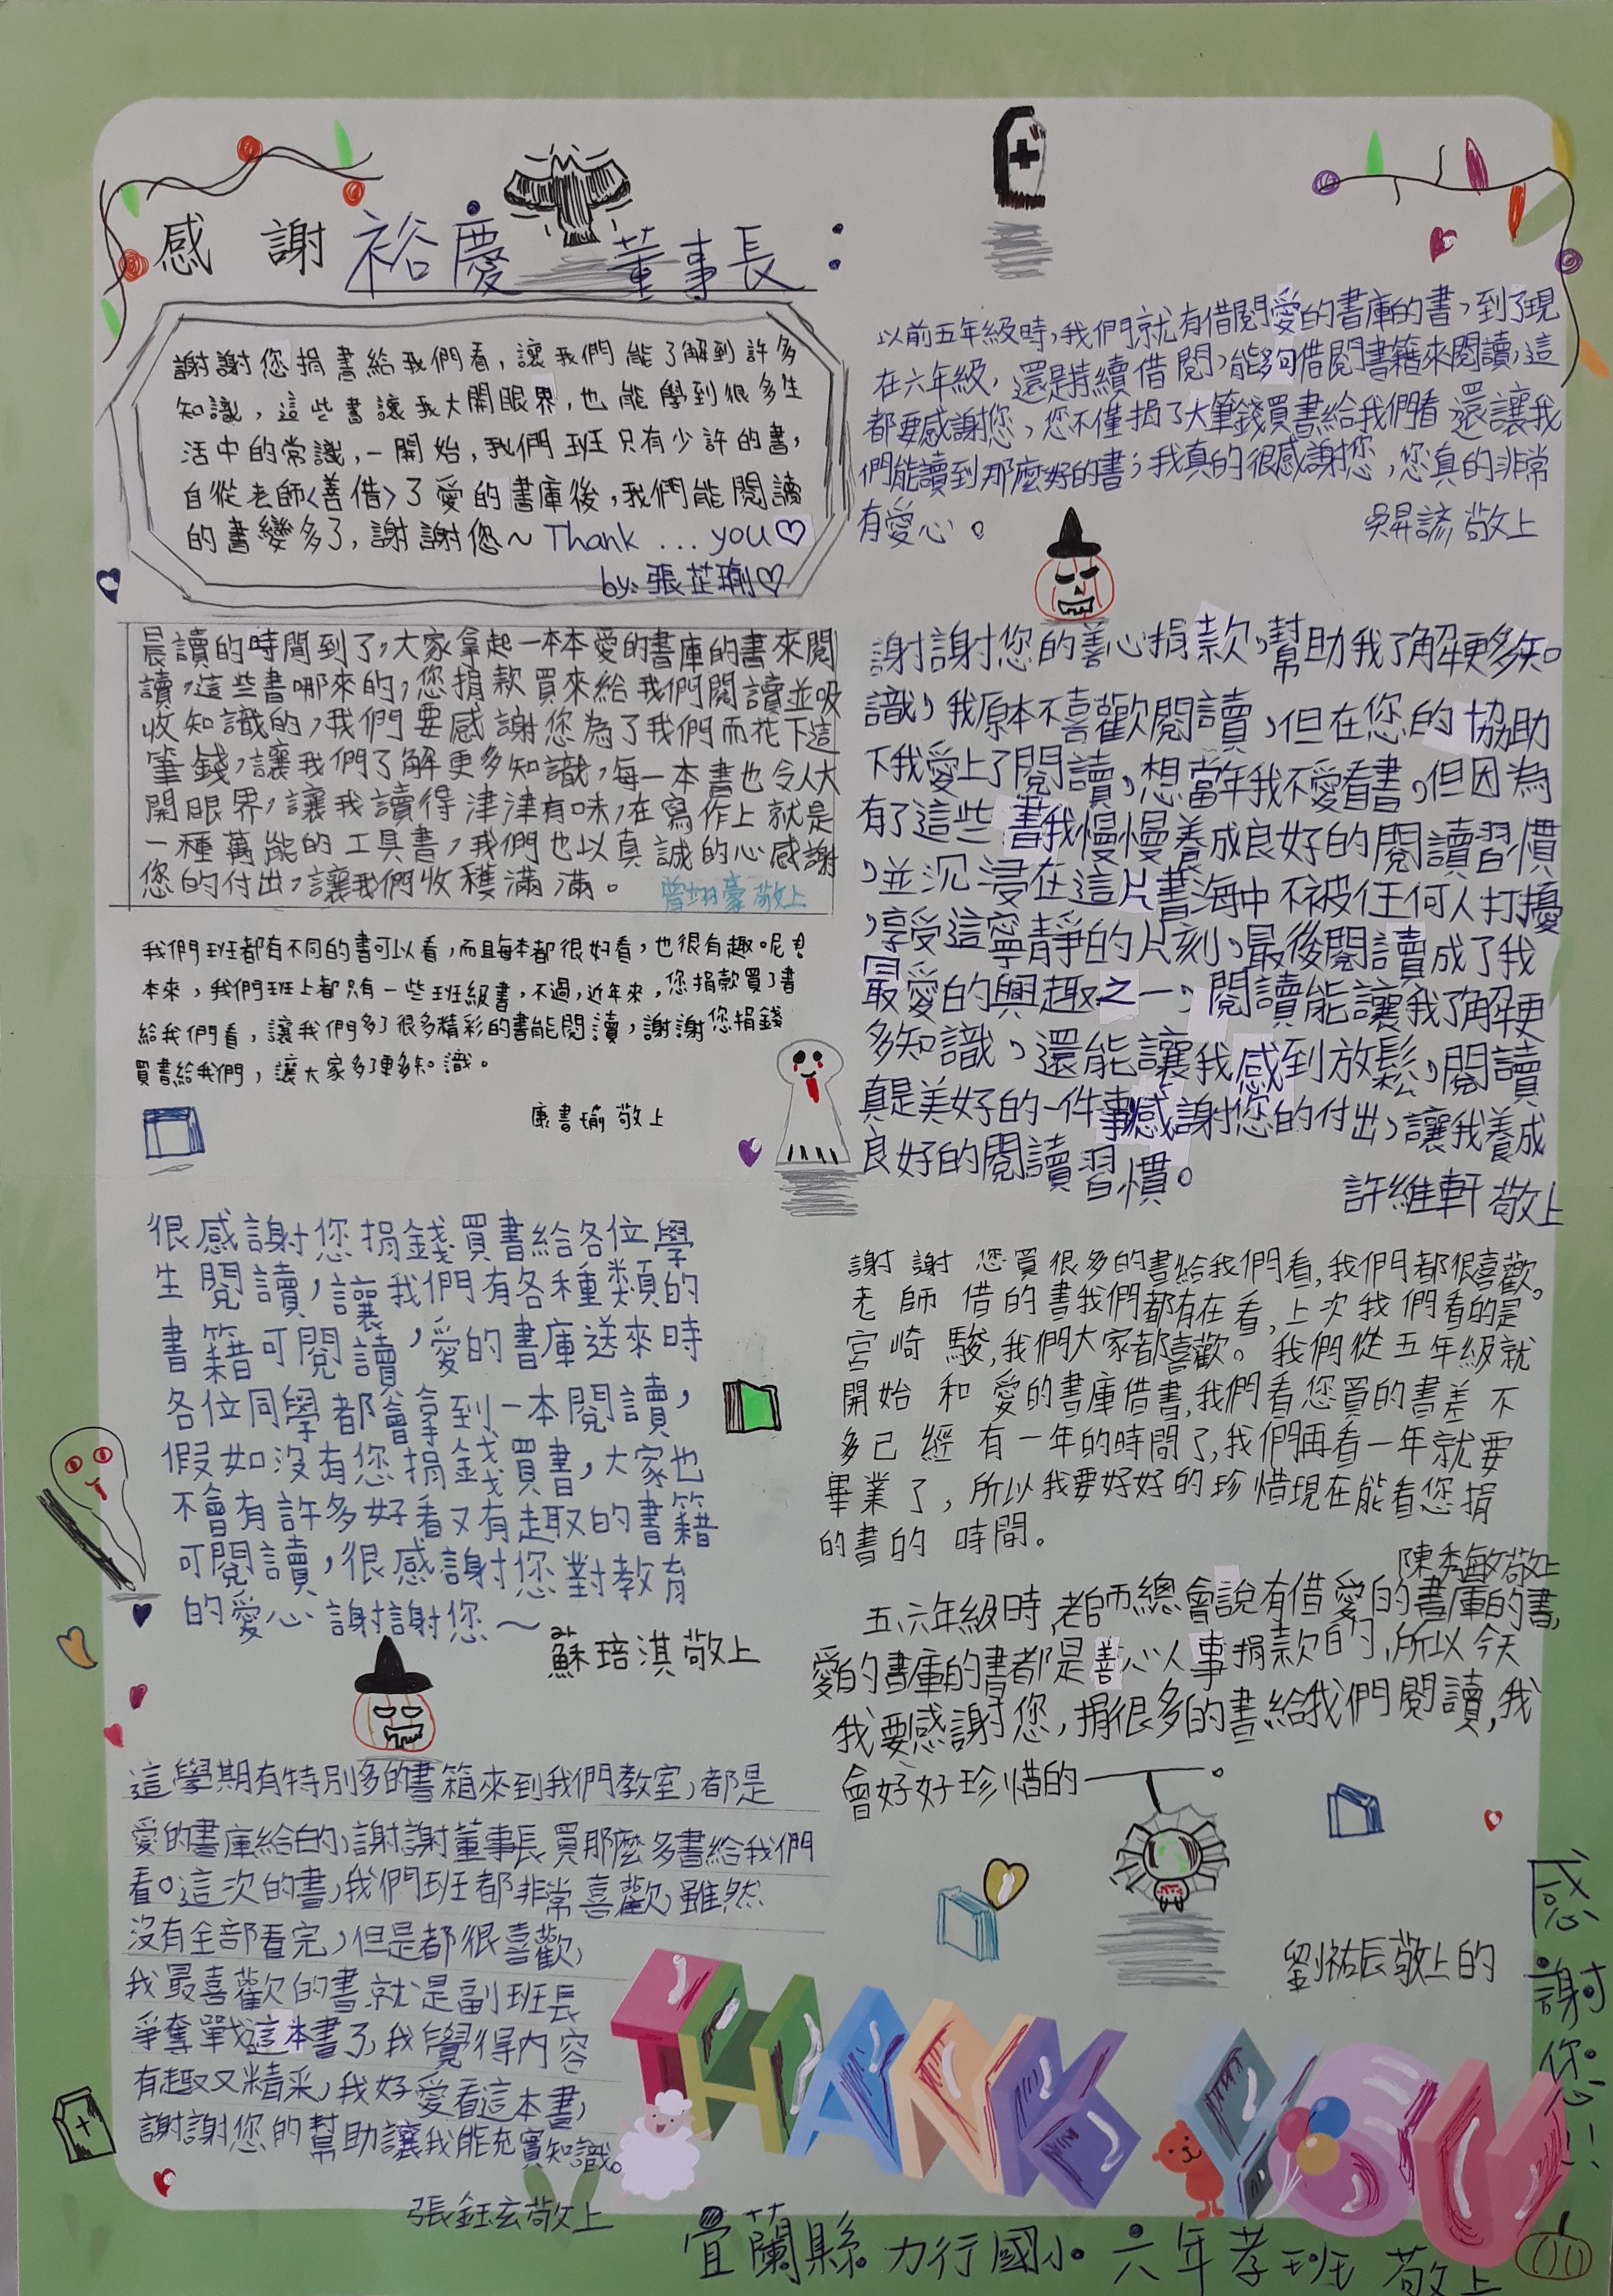 感謝裕慶董事長：
謝謝您捐書給我們看，讓我們能了解到許多
知識，這些書讓我大開眼界，也能學到很多生
活中的常識，一開始，我們班只有少許的書，
自從老師<善借>了愛的書庫後，我們能閱讀
的書變多了，謝謝您～Thank...you♡
by:張芷瑜♡
晨讀的時間到了，大家拿起一本本愛的書庫的書來閱
讀，這些書哪來的，您捐款買來給我們閱讀並吸
收知識的，我們要感謝您為了我們而花下這
筆錢，讓我們了解更多知識，每一本書也令人大
開眼界，讓我讀得津津有味，在寫作上就是
一種萬能的工具書，我們也以真誠的心感謝
您的付出，讓我們收穫滿滿。 曾翊豪敬上
我們班都有不同的書可以看，而且每本都很好看，也很有趣呢！
本來，我們班上都只有一些班級書，不過，近年來，您捐款買了書
給我們看，讓我們多了很多精彩的書能閱讀，謝謝您捐錢
買書給我們，讓大家多了更多知識。
康書瑜敬上
很感謝您捐錢買書給各位學
生閱讀，讓我們有各種類的
書籍可閱讀，愛的書庫送來時
各位同學都會拿到一本閱讀，
假如沒有您捐錢買書，大家也
不會有許多好看又有趣的書籍
可閱讀，很感謝您對教育
的愛心謝謝您～
蘇培淇敬上
這學期有特別多的書箱來到我們教室，都是
愛的書庫給的，謝謝董事長買那麼多書給我們
看。這次的書，我們班都非常喜歡，雖然
沒有全部看完，但是都很喜歡，
我最喜歡的書就是副班長
爭奪戰這本書了，我覺得內容
有趣又精采，我好愛看這本書，
謝謝您的幫助讓我能充實知識。
張鈺玄敬上
以前五年級時，我們就有借閱愛的書庫的書，到了現
在六年級，還是持續借閱，能夠借閱書籍來閱讀，這
都要感謝您，您不僅捐了大筆錢買書給我們看還讓我
們能讀到那麼好的書，我真的很感謝您，您真的非常
有愛心。
吳昇諺敬上
謝謝您的善心捐款，幫助我了解更多知
識，我原本不喜歡閱讀，但在您的協助
下我愛上了閱讀，想當年我不愛看書，但因為
有了這些書我慢慢養成良好的閱讀習慣
，並沉浸在這片書海中不被任何人打擾
，享受這寧靜的片刻，最後閱讀成了我
最愛的興趣之一，閱讀能讓我了解更
多知識，還能讓我感到放鬆，閱讀
真是美好的一件事感謝您的付出，讓我養成
良好的閱讀習慣。
許維軒敬上
謝謝您買很多的書給我們看，我們都很喜歡。
老師借的書我們都有在看，上次我們看的是
宮崎駿，我們大家都喜歡。我們從五年級就
開始和愛的書庫借書，我們看您買的書差不
多已經有一年的時間了，我們再看一年就要
畢業了，所以我要好好的珍惜現在能看您捐
的書的時間。
陳秀敏敬上
五、六年級時，老師總會說有借愛的書庫的書，
愛的書庫的書都是善心人事捐款的，所以今天
我要感謝您，捐很多的書給我們閱讀，我
會好好珍惜的——。
劉祐辰敬上的
感謝您！！
THANK YOU
宜蘭縣力行國小六年孝班敬上